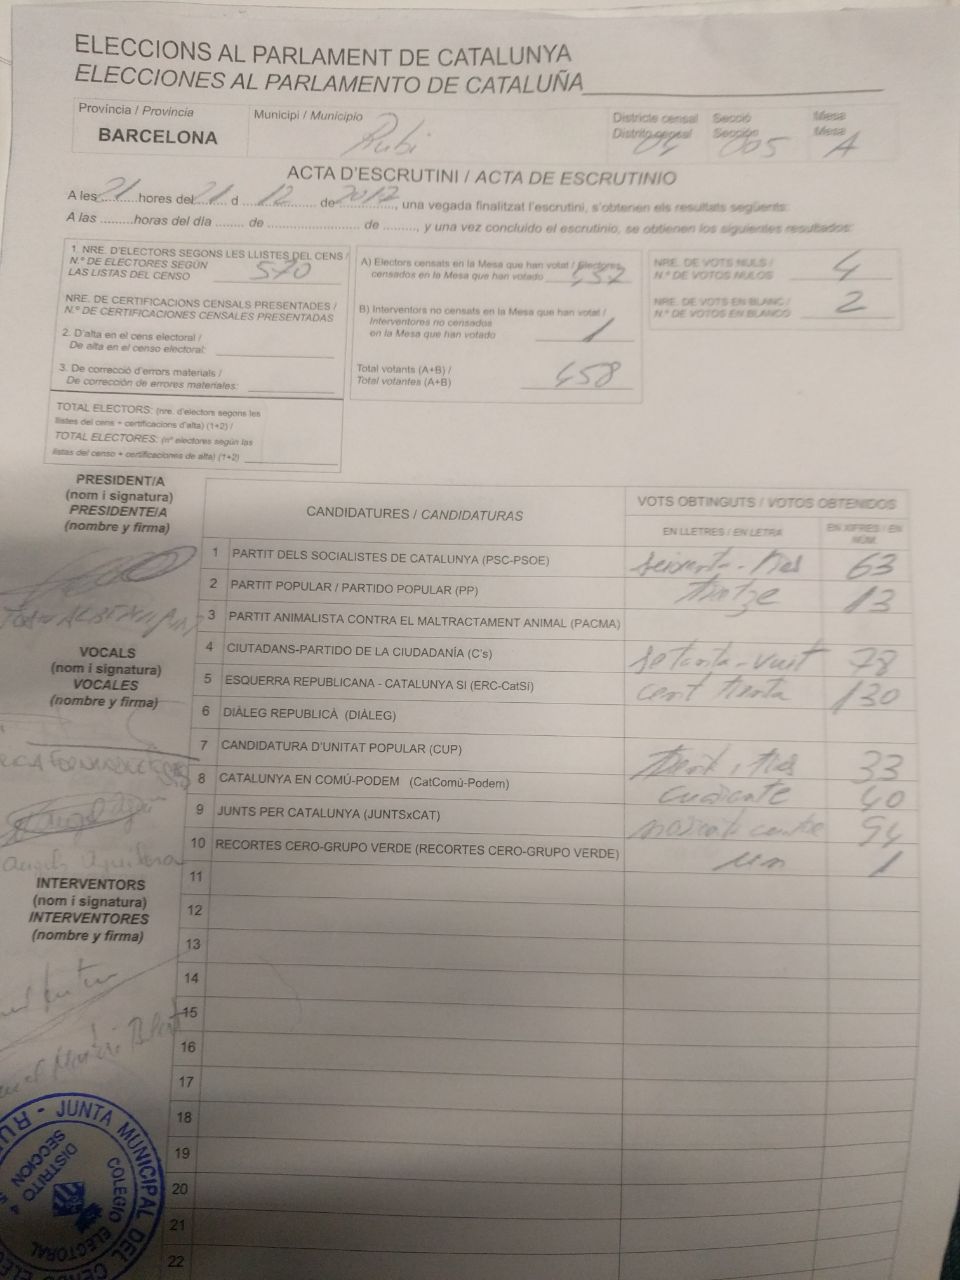 ELECCIONS AL PARLAMENT DE CATALUNYA
ELECCIONES AL PARLAMENTO DE CATALUÑA
Província / Provincia
BARCELONA
Municipi / Municipio
Rubi
Districte censal
Distrito censal
04
Secció
Sección
005
Mesa
Mesa
A
ACTA D'ESCRUTINI / ACTA DE ESCRUTINIO
A les 21 hores del 21 d 12 de 2017, una vegada finalitzat l'escrutini, s'obtenen els resultats següents:
A las .........horas del día ....... de ....................... de ........, y una vez concluido el escrutinio, se obtienen los siguientes resultados:
1. NRE. D'ELECTORS SEGONS LES LLISTES DEL CENS /
N.º DE ELECTORES SEGÚN
LAS LISTAS DEL CENSO
570
NRE. DE CERTIFICACIONS CENSALS PRESENTADES /
N.º DE CERTIFICACIONES CENSALES PRESENTADAS
2. D'alta en el cens electoral /
De alta en el censo electoral:
3. De correcció d'errors materials /
De corrección de errores materiales:
TOTAL ELECTORS: (nre. d'electors segons les
llistes del cens + certificacions d'alta) (1+2) /
TOTAL ELECTORES: (nº electores según las
listas del censo + certificaciones de alta) (1+2)
A) Electors censats en la Mesa que han votat / Electores
censados en la Mesa que han votado
457
B) Interventors no censats en la Mesa que han votat /
Interventores no censados
en la Mesa que han votado
1
Total votants (A+B) /
Total votantes (A+B)
458
NRE. DE VOTS NULS /
N.º DE VOTOS NULOS
4
NRE. DE VOTS EN BLANC /
N.º DE VOTOS EN BLANCO
2
PRESIDENT/A
(nom i signatura)
PRESIDENTE/A
(nombre y firma)
VOCALS
(nom i signatura)
VOCALES
(nombre y firma)
INTERVENTORS
(nom i signatura)
INTERVENTORES
(nombre y firma)
CANDIDATURES / CANDIDATURAS
VOTS OBTINGUTS / VOTOS OBTENIDOS
EN LLETRES / EN LETRA
EN XIFRES / EN
NÚM.
1 PARTIT DELS SOCIALISTES DE CATALUNYA (PSC-PSOE) seixanta-tres 63
2 PARTIT POPULAR / PARTIDO POPULAR (PP) tretze 13
3 PARTIT ANIMALISTA CONTRA EL MALTRACTAMENT ANIMAL (PACMA)
4 CIUTADANS-PARTIDO DE LA CIUDADANÍA (C's) setanta-vuit 78
5 ESQUERRA REPUBLICANA - CATALUNYA SI (ERC-CatSí) cent trenta 130
6 DIÀLEG REPUBLICÀ (DIÀLEG)
7 CANDIDATURA D'UNITAT POPULAR (CUP) trent i tres 33
8 CATALUNYA EN COMÚ-PODEM (CatComú-Podem) 40
9 JUNTS PER CATALUNYA (JUNTSxCAT) 94
10 RECORTES CERO-GRUPO VERDE (RECORTES CERO-GRUPO VERDE) un 1
11
12
13
14
15
16
17
18
19
20
21
22
JUNTA MUNICIPAL DEL
COLEGIO ELECTORAL
DISTRITO
SECCION